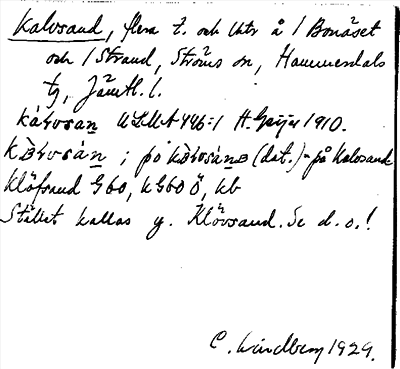 Kalvsand, flera t. och lktr å / Bonäset
och / Strand, Ströms sn, Hammerdals
tg, Jämtl. l.
kálvsan ULMA 446:1 H. Geijer 1910.
kàlvsán ; på kàlvsánə (dat.) = på Kalvsand
Klöfsand G 60, KG 60 Ö, kb
Stället kallas y. Klövsand. Se d. o.!
C. Lindberg 1929.